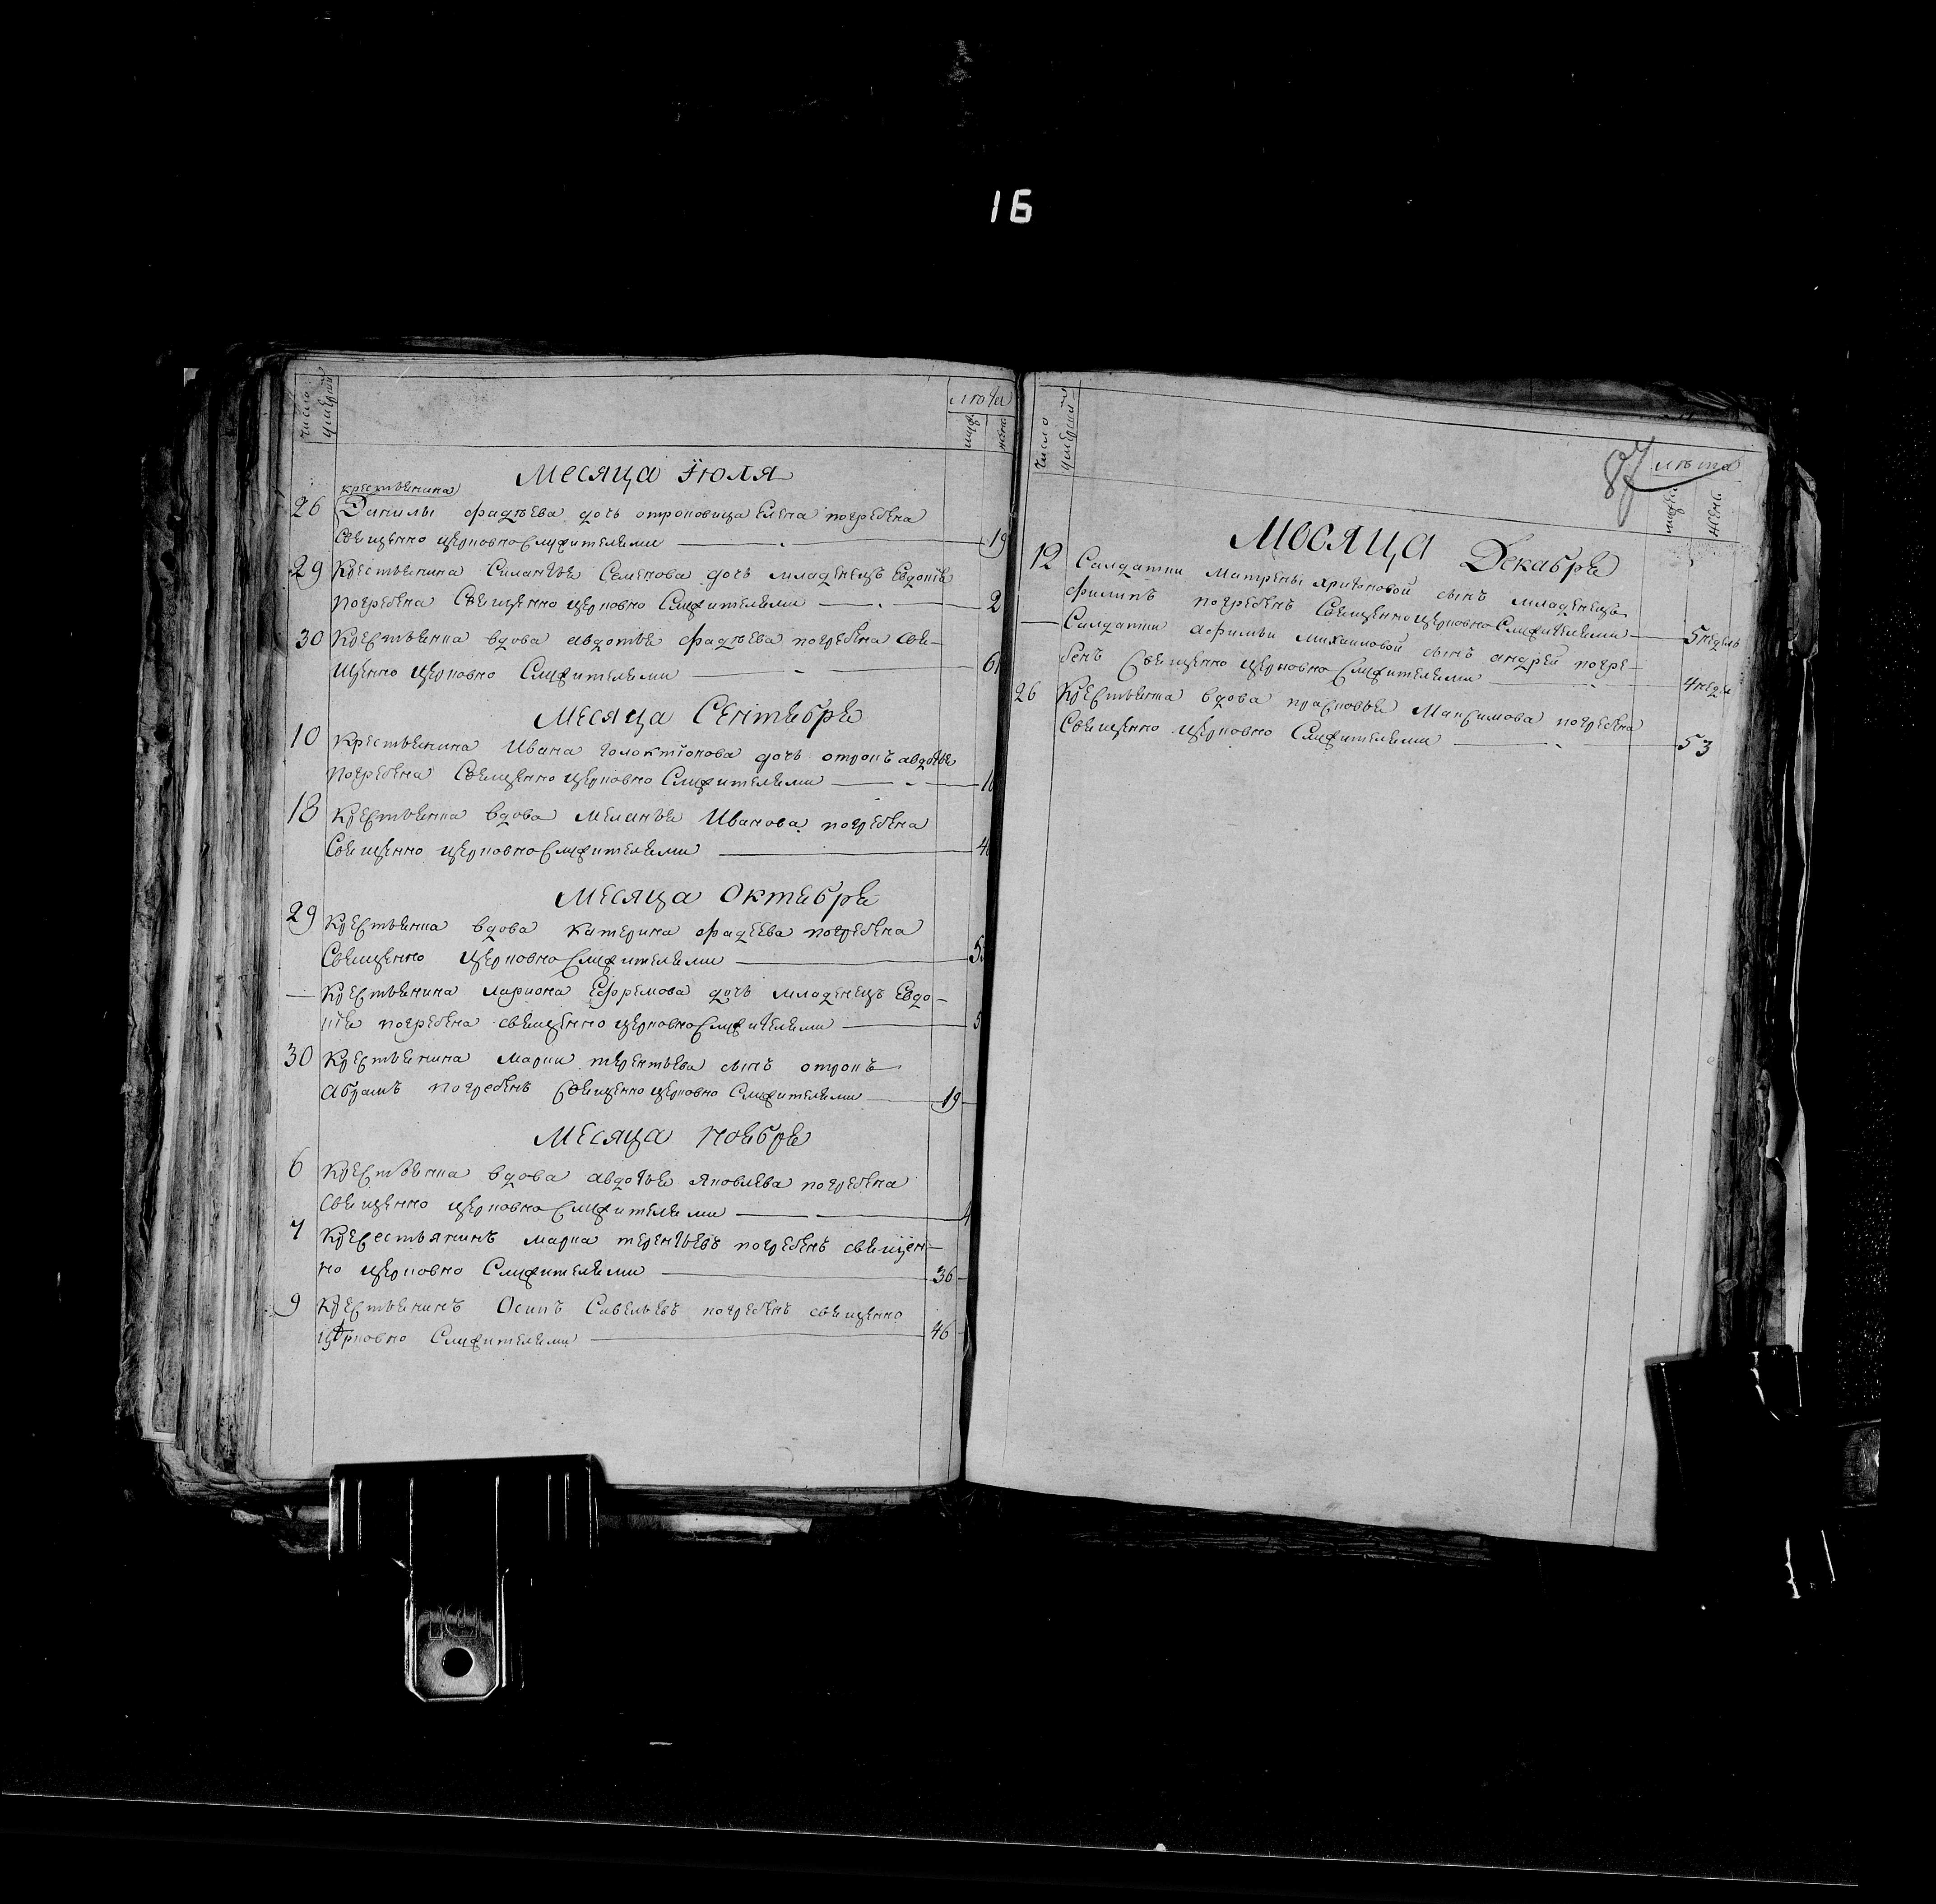 16
число умерших
лѣта
муж
жен
Месяца Июля
крестьянина
26 Данилы фадѣева дочь отроковица Елена погребена
Священно церковнослужителями 19
29 Крестьянина Силантья Семенова дочь младенецъ Евдокiя
погребена Священно церковно Служителями 2
30 Крестьянка вдова авдотья фадѣева погребена Свя-
щенно церковно Служителями 61
Месяца Сентября
10 Крестьянина Ивана Голоктiонова дочь отрокъ авдотья
погребена Священно церковно Служителями
18 Крестьянка вдова Меланья Иванова погребена
Священно церковнослужителями
Месяца Октября
29 Крестьянка вдова катерина фадеева погребена
Священно церковно Служителями
— Крестьянина лариона Ефремова дочь младенецъ Евдо-
кiя погребена священно церковнослужителями 5
30 Крестьянина Марки терентьева сынъ отрокъ
абрамъ погребенъ Священно церковно Служителями 19
Месяца ноября
6 Крестьянка вдова авдотья яковлева погребена
Священно церковно Служителями
7 Крестьянинъ марка терентьевъ погребенъ священ-
но церковно Служителями 36
9 Крестьянинъ Осипъ Савельевъ погребенъ священно
церковно Служителями 46
число умерший
87
лѣта
мужеск
женс
Месяца Декабря
12 Салдатки Матрены Харитоновой сынъ младенецъ
филипъ погребенъ Священно церковно Служителями 5 недель
— Салдатки афимьи михаиловой сынъ андрей погре-
бенъ Священно церковно Служителями 4 неде
26 Крестьянка вдова прасковья Максимова погребена
Священно церковно Служителями 53